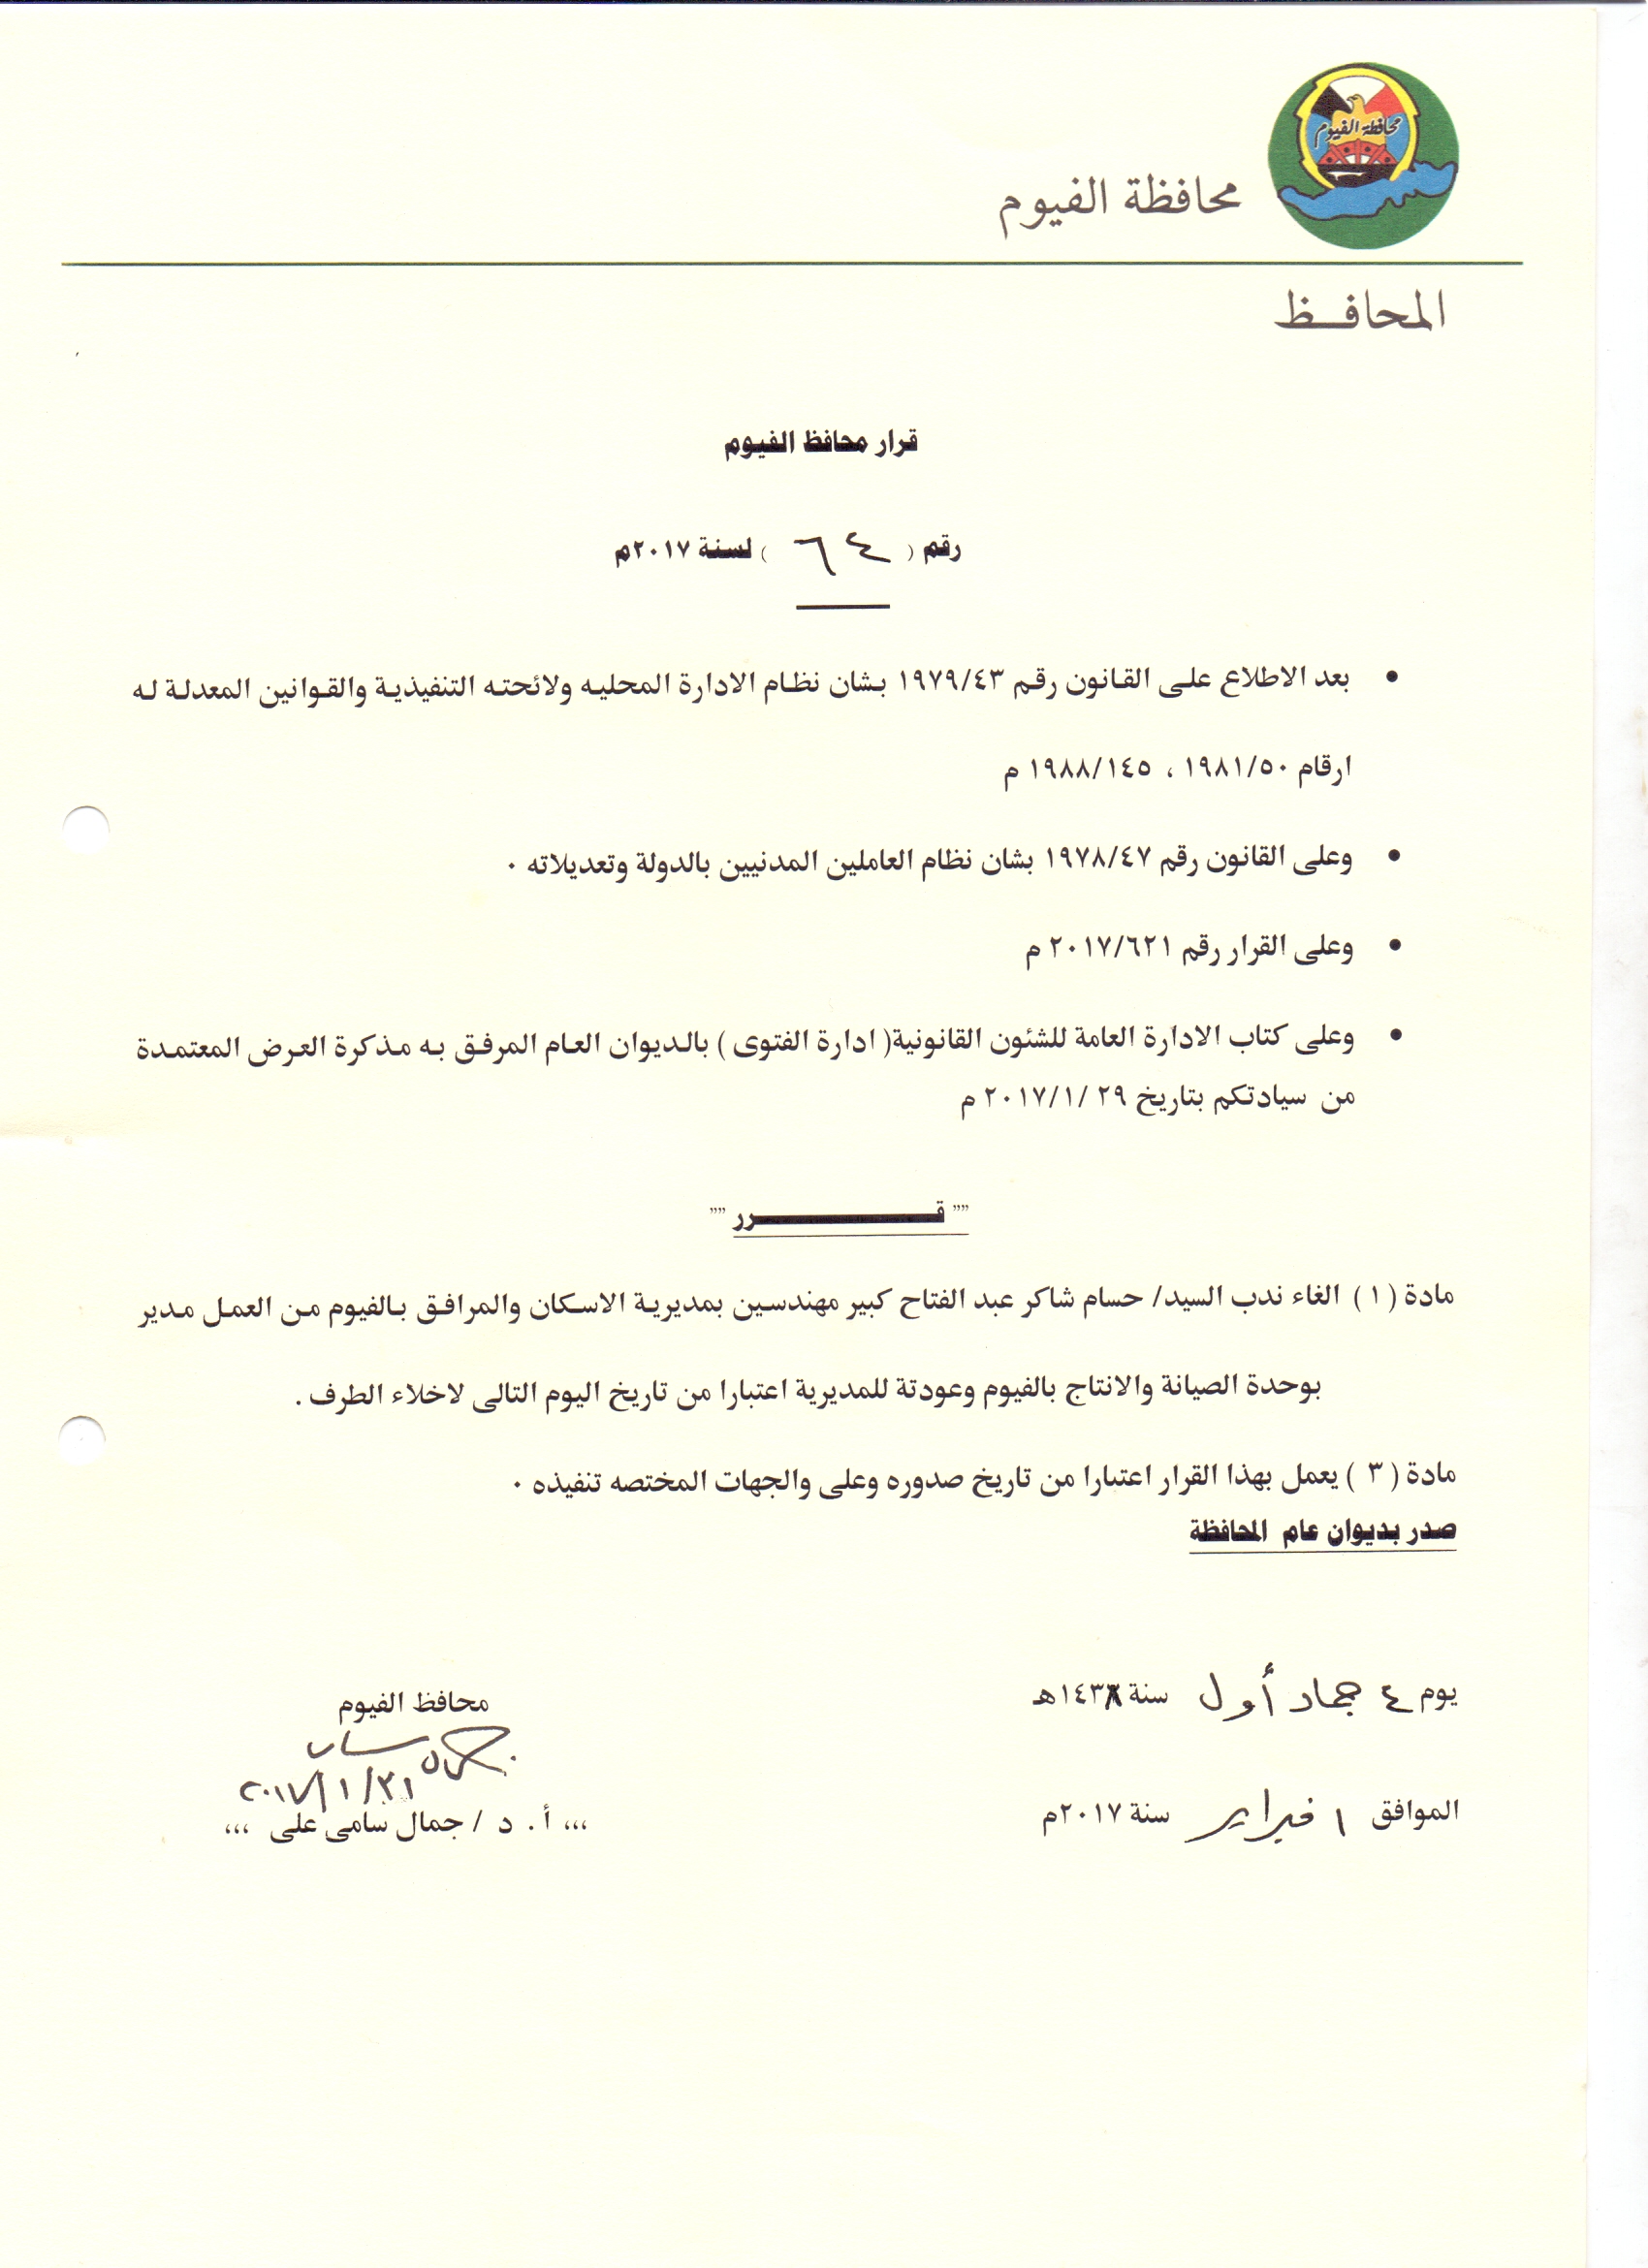 محافظة الفيوم
محافظة الفيوم
المحافـــظ
قرار محافظ الفيوم
رقم ( ٦٤ ) لسنة ٢٠١٧م
• بعد الاطلاع على القانون رقم ١٩٧٩/٤٣ بشان نظام الادارة المحليه ولائحته التنفيذية والقوانين المعدلة له
ارقام ١٩٨١/٥٠ ، ١٩٨٨/١٤٥ م
• وعلى القانون رقم ١٩٧٨/٤٧ بشان نظام العاملين المدنيين بالدولة وتعديلاته ٠
• وعلى القرار رقم ٢٠١٧/٦٢١ م
• وعلى كتاب الادارة العامة للشئون القانونية( ادارة الفتوى ) بالديوان العام المرفق به مذكرة العرض المعتمدة
من سيادتكم بتاريخ ٢٩ /٢٠١٧/١ م
”” قـــــــــــــرر ””
مادة ( ١ ) الغاء ندب السيد/ حسام شاكر عبد الفتاح كبير مهندسين بمديرية الاسكان والمرافق بالفيوم من العمل مدير
بوحدة الصيانة والانتاج بالفيوم وعودتة للمديرية اعتبارا من تاريخ اليوم التالى لاخلاء الطرف .
مادة ( ٣ ) يعمل بهذا القرار اعتبارا من تاريخ صدوره وعلى والجهات المختصه تنفيذه ٠
صدر بديوان عام المحافظة
يوم ٤ جماد أول سنة ١٤٣٨هـ
الموافق ١ فبراير سنة ٢٠١٧م
محافظ الفيوم
٢٠١٧/١/٣١
،،، أ. د / جمال سامى على ،،،